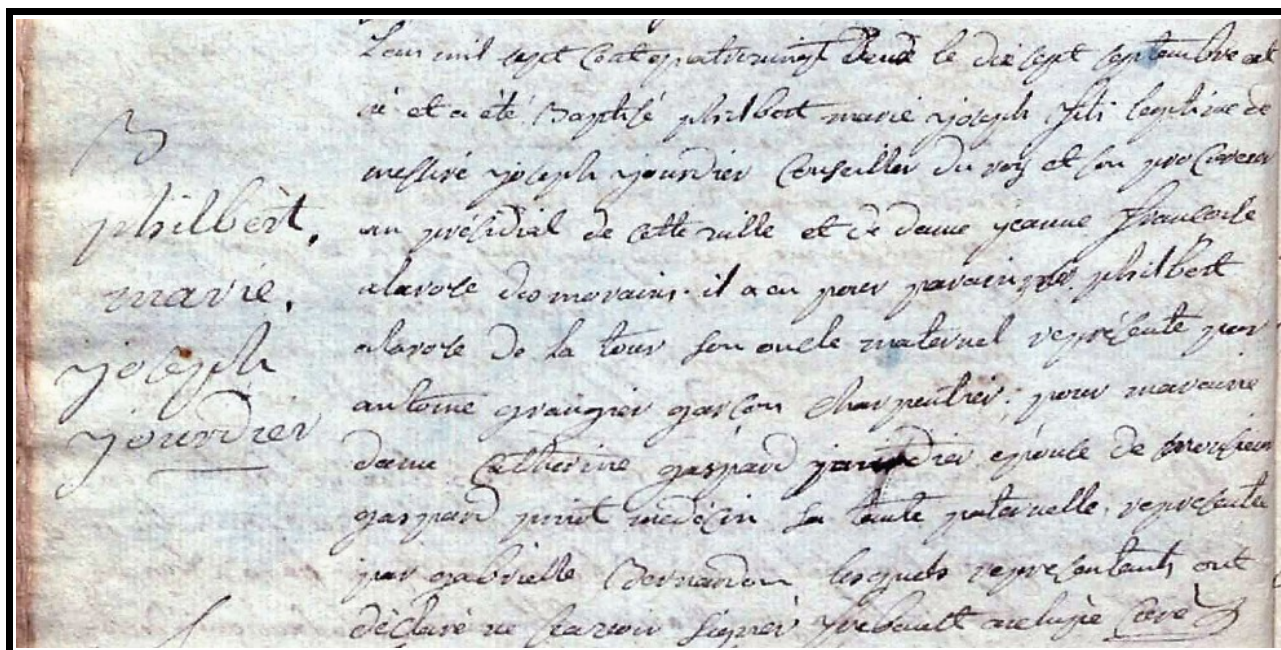 B
philbèrt.
marie.
joseph
jourdier
L'an mil sept cent quatrevingt deux le dix sept septembre est
né et a été Baptisé philbert marie joseph fils legitime de
messire joseph jourdier Conseiller du roy et son procureur
au présidial de cette ville et de dame jeanne francoise
alarose desmorains. il a eu pour parain philbert
alarose de la tour son oncle maternel représenté par
antoine grangier garçon charpentier; pour maraine
dame catherine gaspard jourdier épouse de monsieur
gaspard pinot medecin sa tante paternelle. representée
par gabrielle Bernardon lesquels representants ont
déclaré ne scavoir signer curé